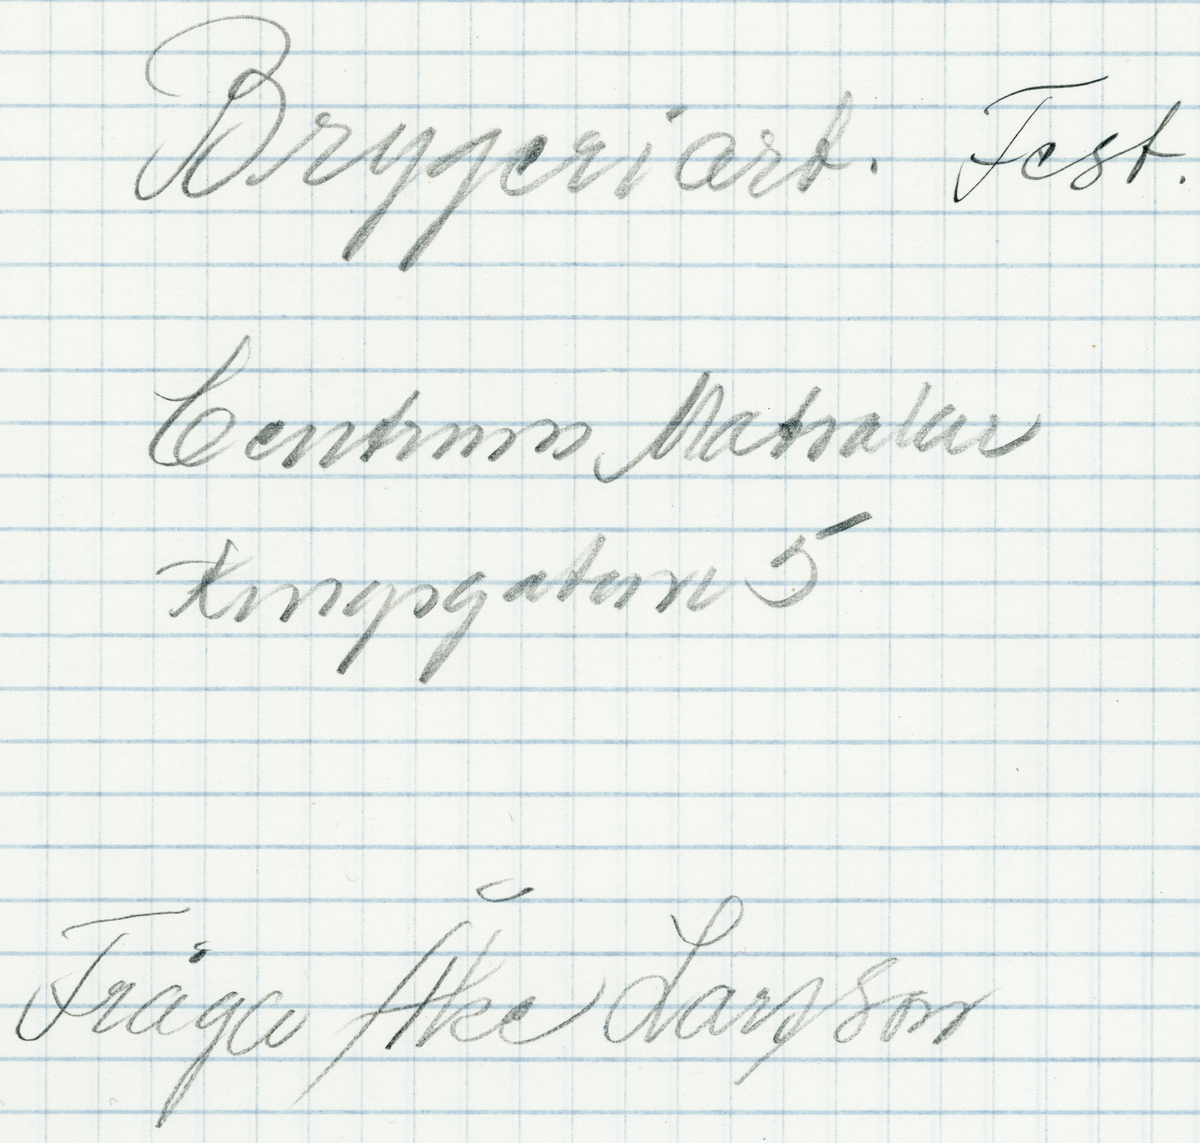 Brygeriart. Fest.
Centrum Matsalar
Kungsgatan 5
Fråga Åke Larsson